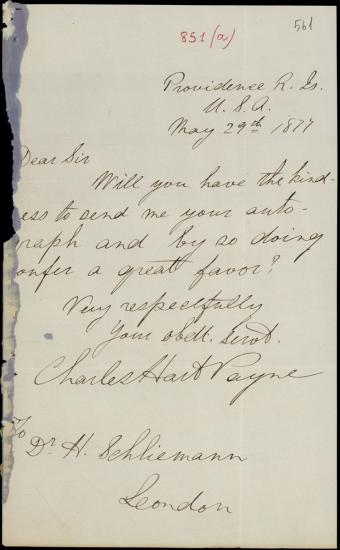 561
851 (a)
Providence R. Is.
U. S. A.
May 29th 1877
Dear Sir
Will you have the kind-
ess to send me your auto-
raph and by so doing
onfer a great favor?
Very respectfully
Your obedt. Servt.
Charles Hart Payne
To
Dr. H. Schliemann
London